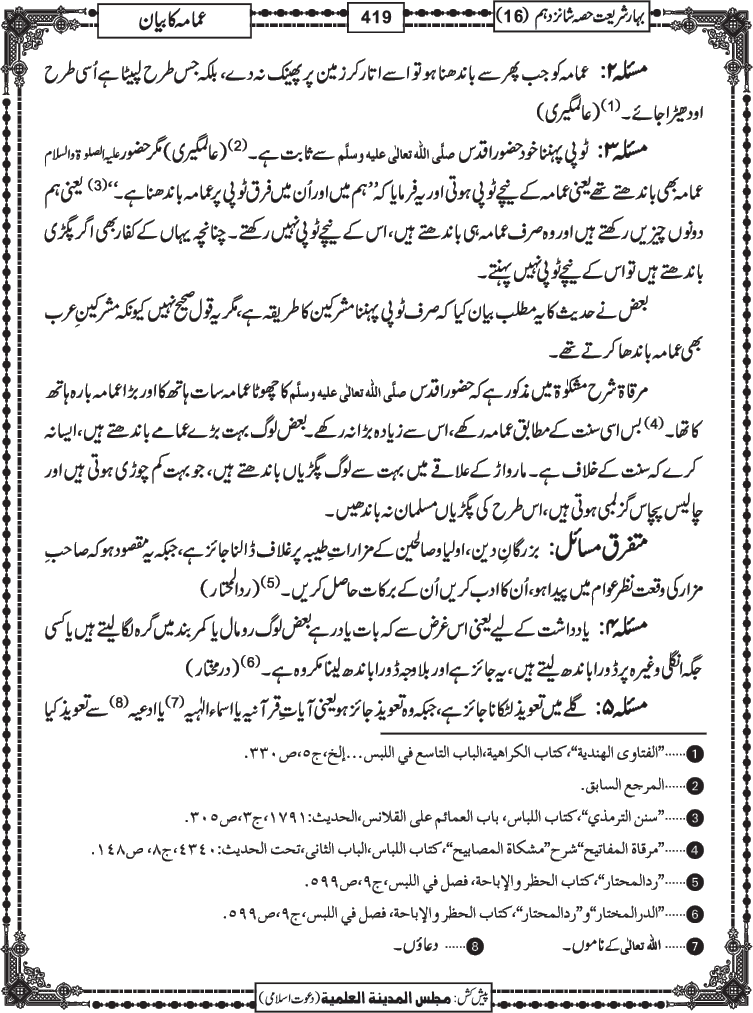 بہارِ شریعت حصہ شانزدہم (16)
419
عمامہ کا بیان
مسئلہ ۲: عمامہ کو جب پھر سے باندھنا ہو تو اسے اتار کر زمین پر پھینک نہ دے، بلکہ جس طرح لپیٹا ہے اُسی طرح
اودھیڑا جائے۔(1) (عالمگیری)
مسئلہ ۳: ٹوپی پہننا خود حضور اقدس صلَّی اللہ تعالٰی علیہ وسلَّم سے ثابت ہے۔(2) (عالمگیری) مگر حضور علیہ الصلوۃ والسلام
عمامہ بھی باندھتے تھے یعنی عمامہ کے نیچے ٹوپی ہوتی اور یہ فرمایا کہ ’’ہم میں اور اُن میں فرق ٹوپی پر عمامہ باندھنا ہے۔‘‘(3) یعنی ہم
دونوں چیزیں رکھتے ہیں اور وہ صرف عمامہ ہی باندھتے ہیں، اس کے نیچے ٹوپی نہیں رکھتے۔ چنانچہ یہاں کے کفار بھی اگر پگڑی
باندھتے ہیں تو اس کے نیچے ٹوپی نہیں پہنتے۔
بعض نے حدیث کا یہ مطلب بیان کیا کہ صرف ٹوپی پہننا مشرکین کا طریقہ ہے، مگر یہ قول صحیح نہیں کیونکہ مشرکینِ عرب
بھی عمامہ باندھا کرتے تھے۔
مرقاۃ شرح مشکوٰۃ میں مذکور ہے کہ حضور اقدس صلَّی اللہ تعالٰی علیہ وسلَّم کا چھوٹا عمامہ سات ہاتھ کا اور بڑا عمامہ بارہ ہاتھ
کا تھا۔(4) بس اسی سنت کے مطابق عمامہ رکھے، اس سے زیادہ بڑا نہ رکھے۔ بعض لوگ بہت بڑے عمامے باندھتے ہیں، ایسا نہ
کرے کہ سنت کے خلاف ہے۔ مارواڑ کے علاقے میں بہت سے لوگ پگڑیاں باندھتے ہیں، جو بہت کم چوڑی ہوتی ہیں اور
چالیس پچاس گز لمبی ہوتی ہیں، اس طرح کی پگڑیاں مسلمان نہ باندھیں۔
متفرق مسائل: بزرگانِ دین، اولیا و صالحین کے مزاراتِ طیبہ پر غلاف ڈالنا جائز ہے، جبکہ یہ مقصود ہو کہ صاحبِ
مزار کی وقعت نظر عوام میں پیدا ہو، اُن کا ادب کریں اُن کے برکات حاصل کریں۔(5) (ردالمحتار)
مسئلہ ۴: یادداشت کے لیے یعنی اس غرض سے کہ بات یاد رہے بعض لوگ رومال یا کمر بند میں گرہ لگا لیتے ہیں یا کسی
جگہ انگلی وغیرہ پر ڈورا باندھ لیتے ہیں، یہ جائز ہے اور بلاوجہ ڈورا باندھ لینا مکروہ ہے۔(6) (درمختار)
مسئلہ ۵: گلے میں تعویذ لٹکانا جائز ہے، جبکہ وہ تعویذ جائز ہو یعنی آیاتِ قرآنیہ یا اسماء الٰہیہ(7) یا ادعیہ(8) سے تعویذ کیا
1......”الفتاوی الھندیة“، کتاب الکراھیة، الباب التاسع في اللبس...إلخ، ج۵، ص۳۳۰.
2......المرجع السابق.
3......”سنن الترمذي“، کتاب اللباس، باب العمائم علی القلانس، الحدیث:۱۷۹۱، ج۳، ص۳۰۵.
4......”مرقاة المفاتیح“شرح”مشکاة المصابیح“، کتاب اللباس، الباب الثانی، تحت الحدیث:۴۳۴۰، ج۸، ص۱۴۸.
5......”ردالمحتار“، کتاب الحظر والإباحة، فصل في اللبس، ج۹، ص۵۹۹.
6......”الدرالمختار“و”ردالمحتار“، کتاب الحظر والإباحة، فصل في اللبس، ج۹، ص۵۹۹.
7......اللہ تعالیٰ کے ناموں۔ 8......دعاؤں۔
پیش کش: مجلس المدینة العلمیة (دعوتِ اسلامی)